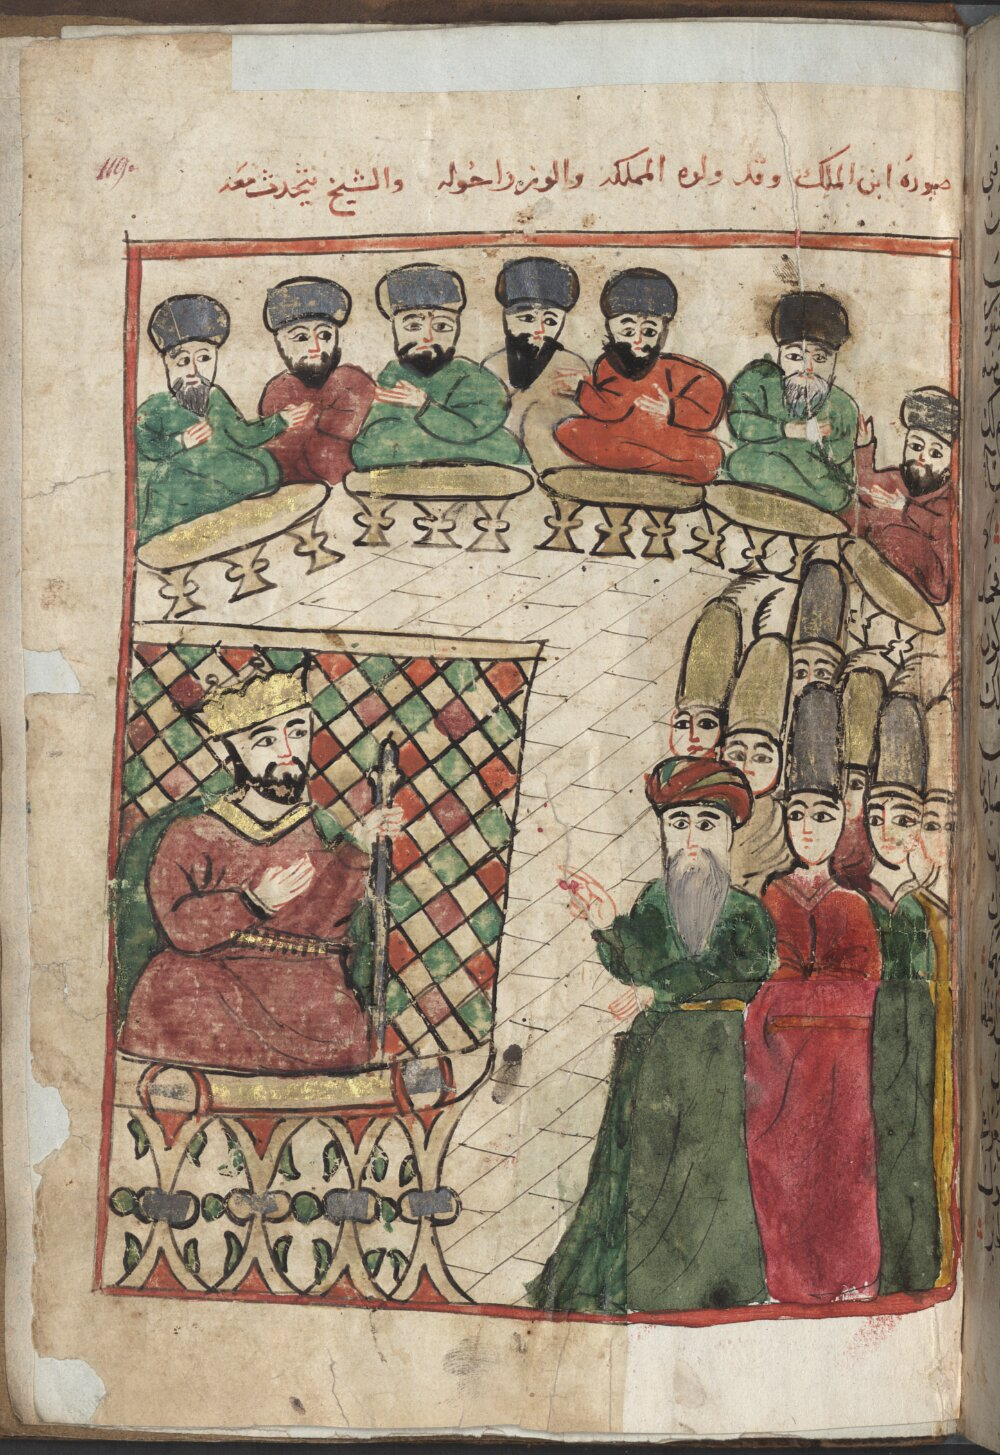 صورة ابن الملك وقد ولوه المملكه والوزرا حوله والشيخ يتحدث معه
119.